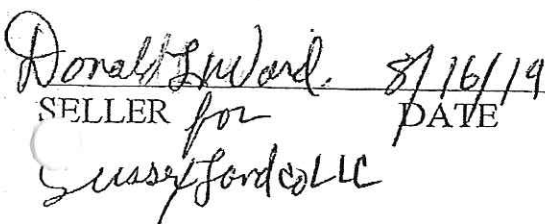 Donald L Ward. 8/16/19
SELLER for DATE
Sussex Landco LLC